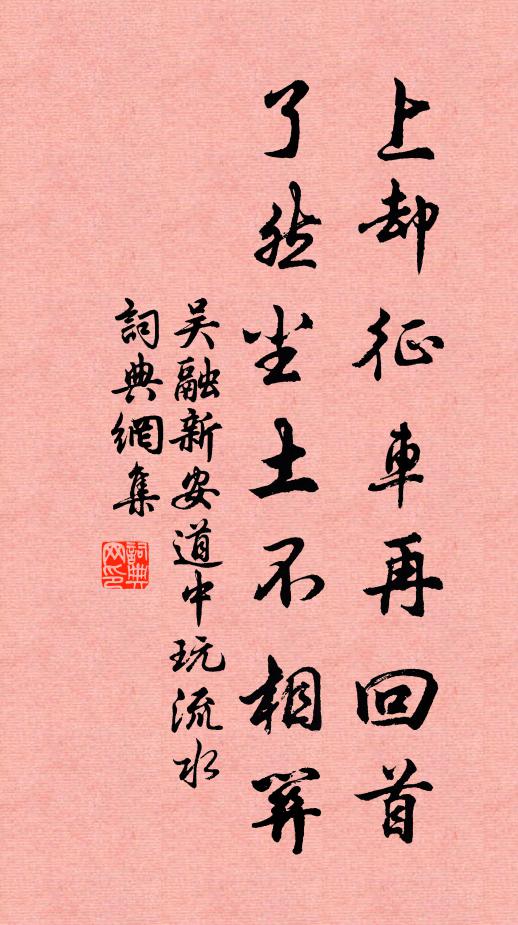 上却征車再回首
了然尘土不相關
吴融新安道中玩流水
詞典網集
詞典网印